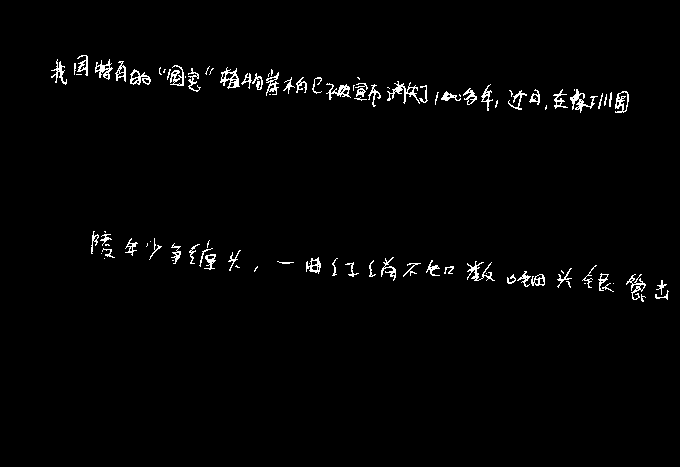 我国特有的“国宝”植物崖柏已被宣布消失了100多年，近日，在四川国
陵年少争缠头，一曲红绡不知数 钿头银篦击